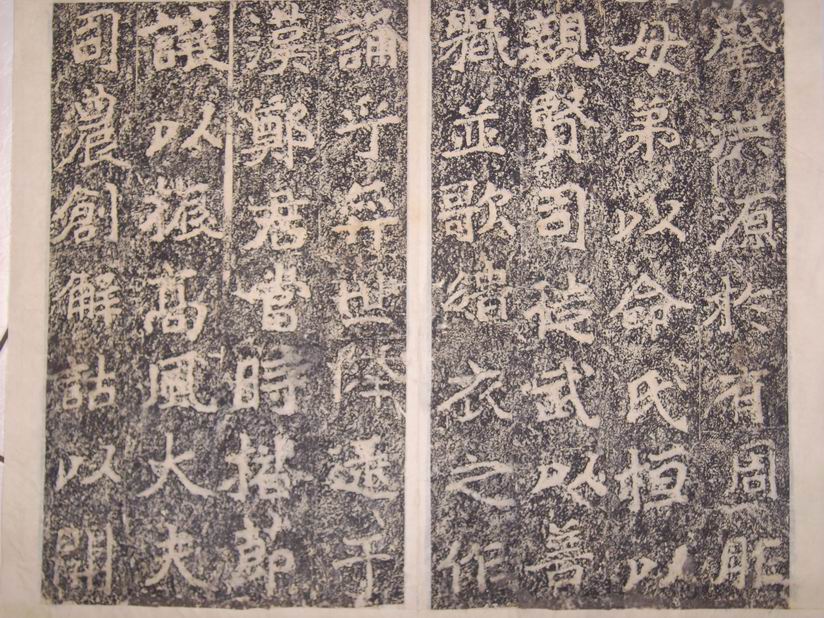 肇洪源於有周胙
母弟以命氏桓以
親賢司徒武以善
職並歌緇衣之作
誦乎奕世降逮于
漢鄭君當時播節
讓以振高風大夫
司農創解詁以開